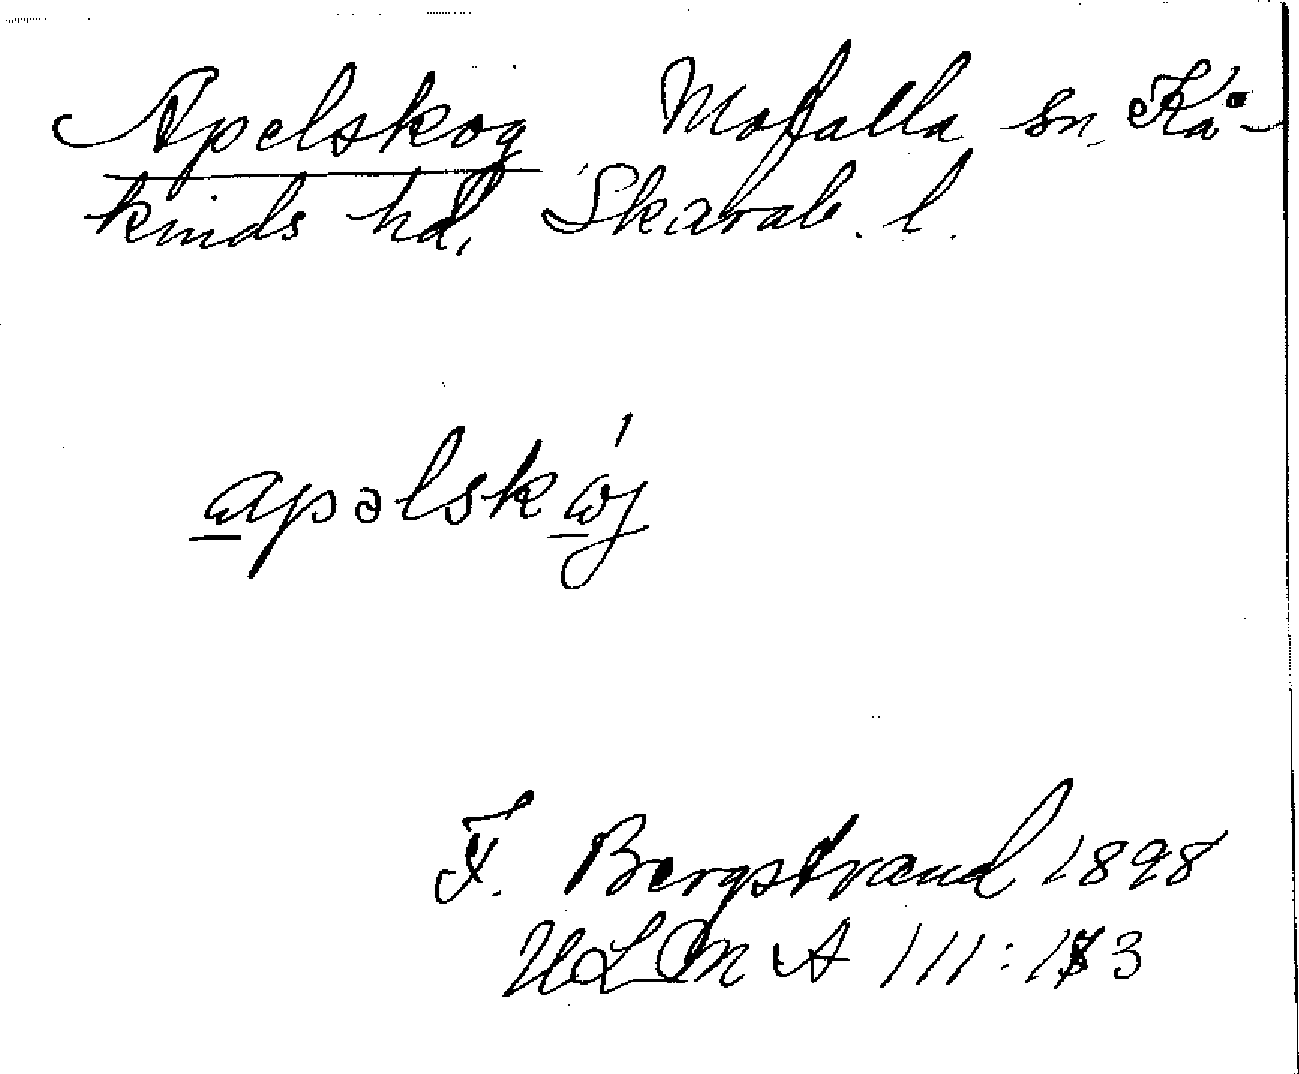 Apelskog Mofalla sn. Kå-
kinds hd, Skarab. l.
apəlskǿj
F. Bergstrand 1898
ULMA 111: